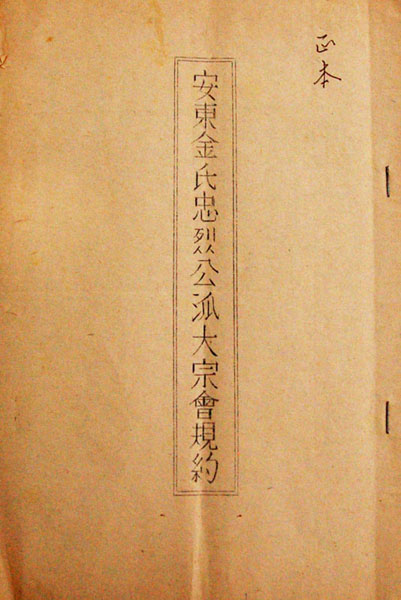 正本
安東金氏忠烈公派大宗會規約